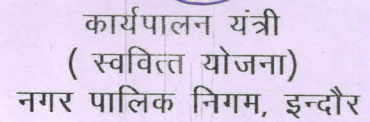 कार्यपालन यंत्री
( स्ववित्त योजना)
नगर पालिक निगम, इन्दौर